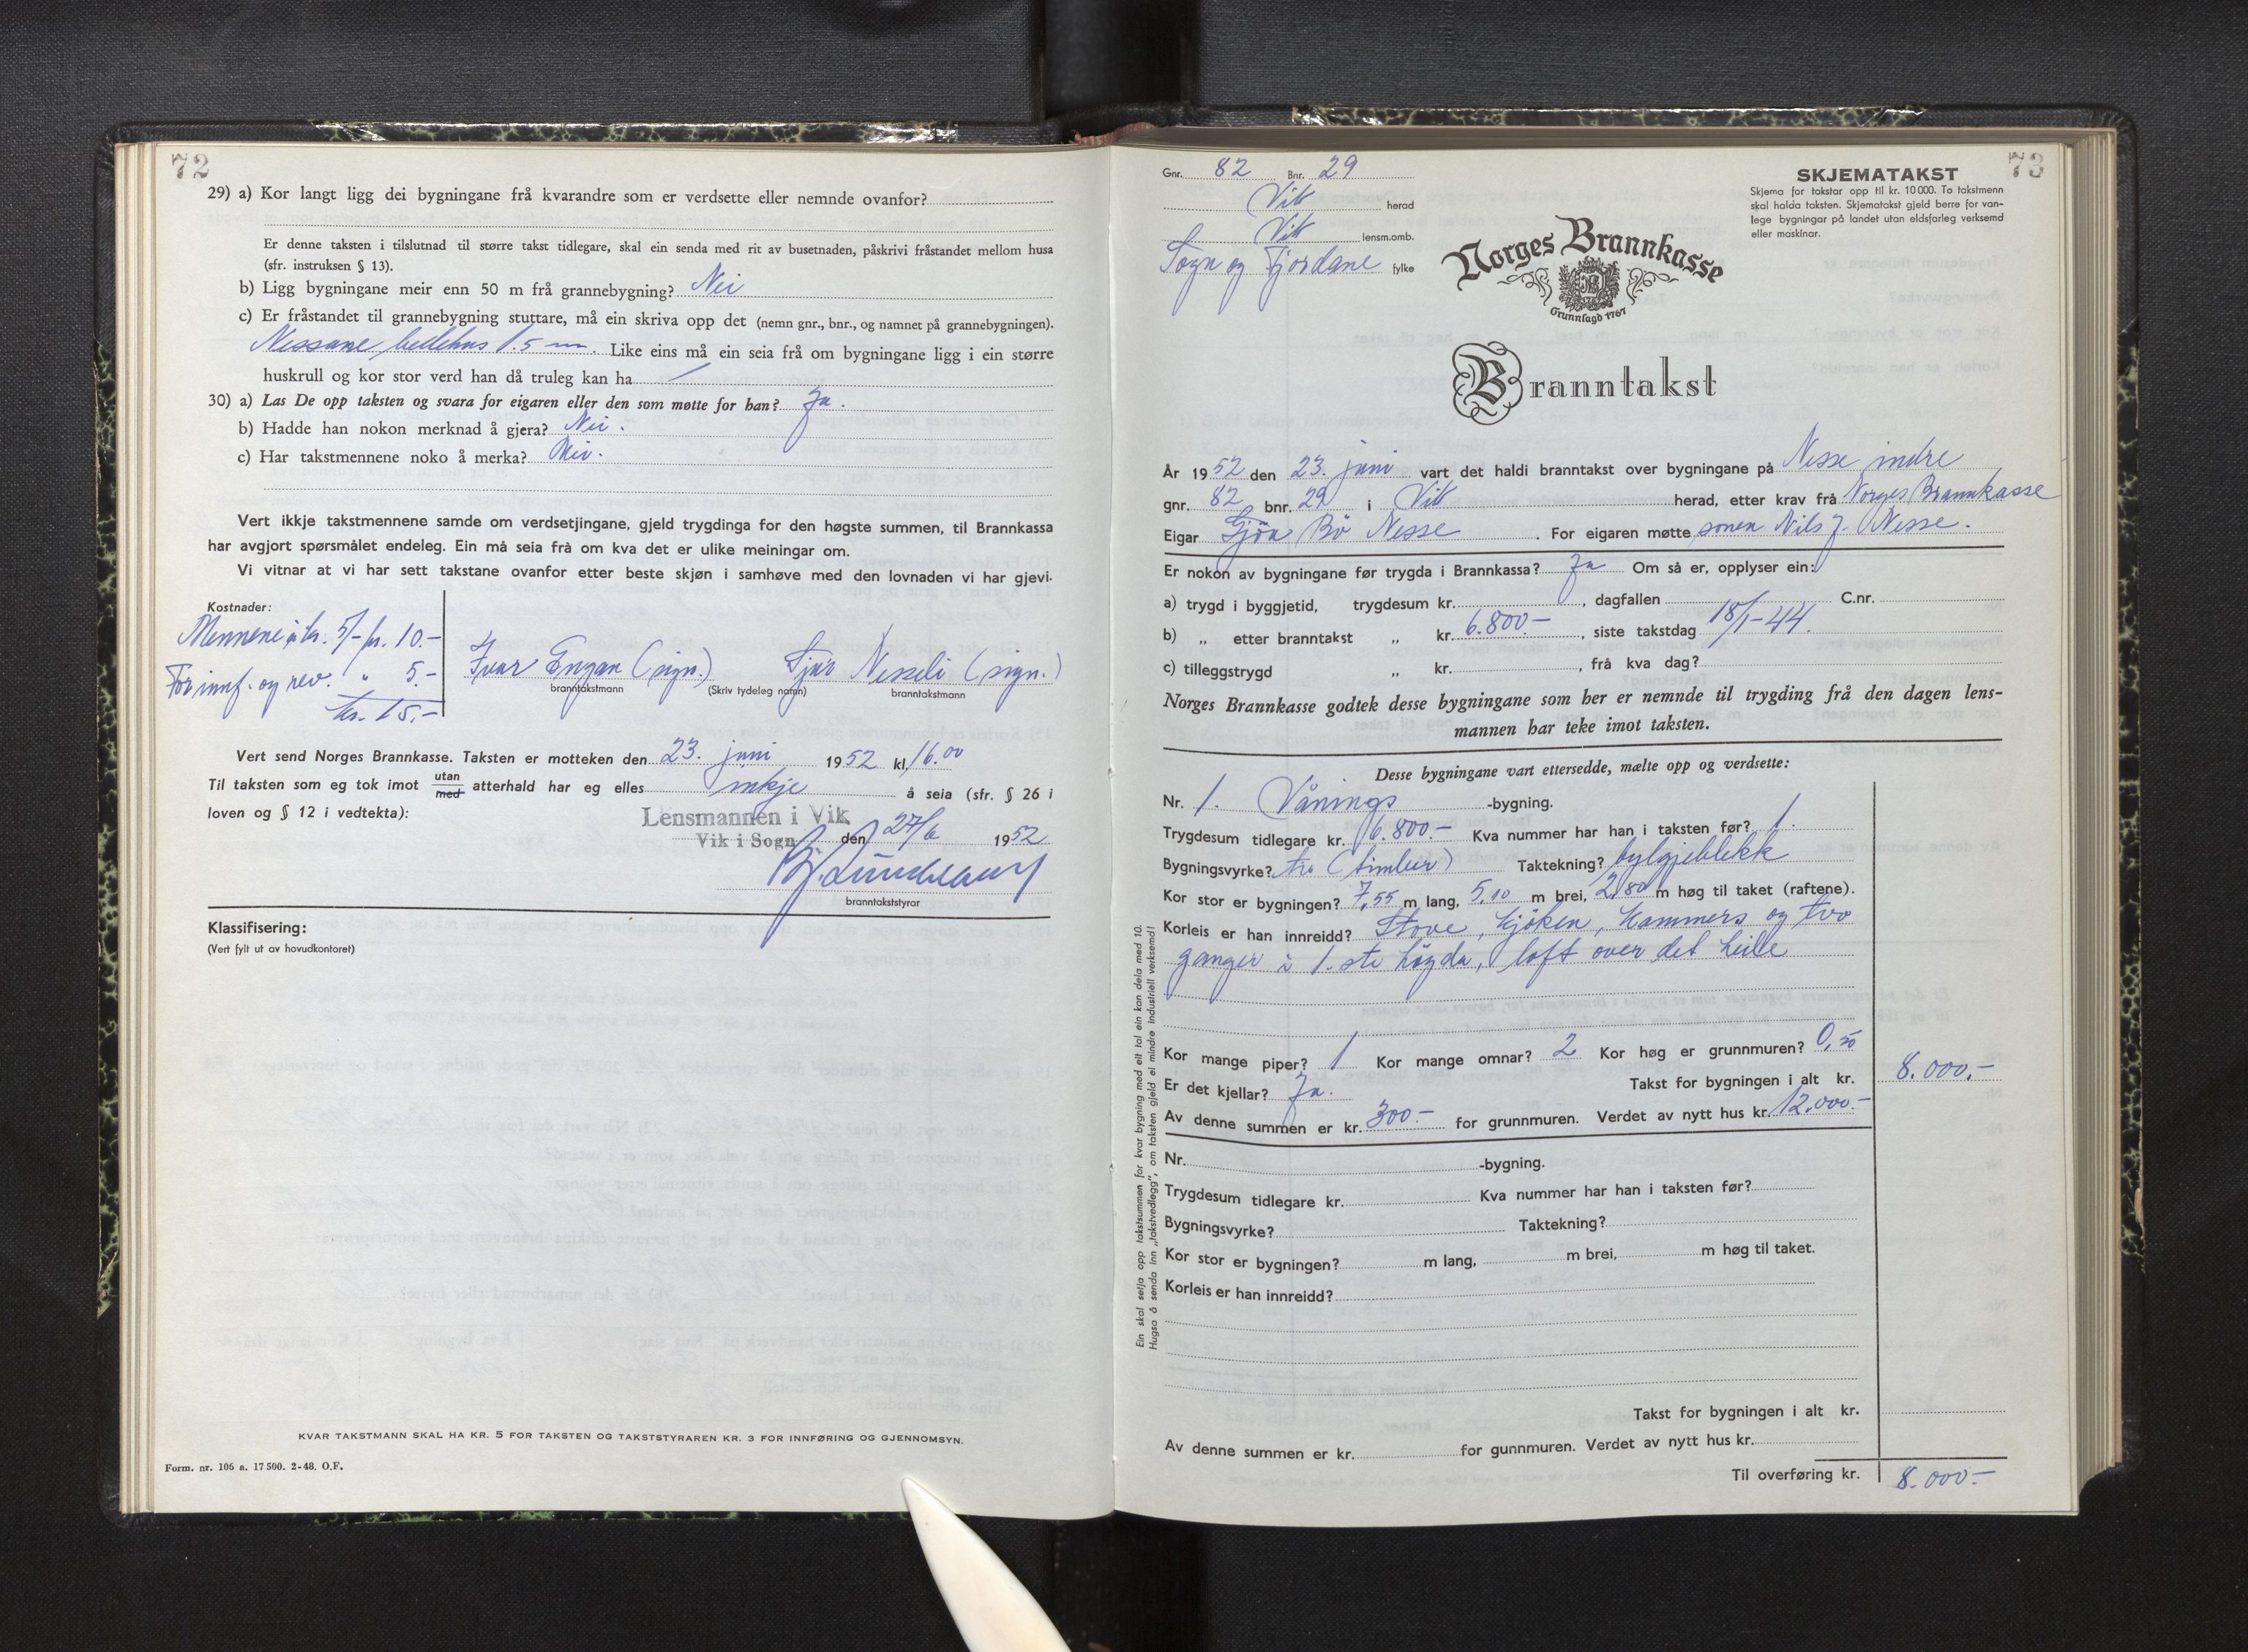 72
29) a) Kor langt ligg dei bygningane frå kvarandre som er verdsette eller nemnde ovanfor?
Er denne taksten i tilslutnad til større takst tidlegare, skal ein senda med rit av busetnaden, påskrivi fråstandet mellom husa
(sfr. instruksen § 13).
b) Ligg bygningane meir enn 50 m frå grannebygning? Nei
c) Er fråstandet til grannebygning stuttare, må ein skriva opp det (nemn gnr., bnr., og namnet på grannebygningen).
Nessane bedehus 1.5 m. Like eins må ein seia frå om bygningane ligg i ein større
huskrull og kor stor verd han då truleg kan ha
30) a) Las De opp taksten og svara for eigaren eller den som møtte for han? Ja.
b) Hadde han nokon merknad å gjera? Nei.
c) Har takstmennene noko å merka? Nei.
Vert ikkje takstmennene samde om verdsetjingane, gjeld trygdinga for den høgste summen, til Brannkassa
har avgjort spørsmålet endeleg. Ein må seia frå om kva det er ulike meiningar om.
Vi vitnar at vi har sett takstane ovanfor etter beste skjøn i samhøve med den lovnaden vi har gjevi.
Kostnader:
Mennene à kr. 5/- kr. 10.-
For innf. og rev. " 5.-
kr. 15.-
Ivar Engan (sign.) Sjur Nesseli (sign.)
branntakstmann (Skriv tydeleg namn) branntakstmann
Vert send Norges Brannkasse. Taksten er motteken den 23. juni 1952 kl. 16.00
Til taksten som eg tok imot utan med atterhald har eg elles inkje å seia (sfr. § 26 i
loven og § 12 i vedtekta):
Lensmannen i Vik
Vik i Sogn den 27/6 1952
branntakststyrar
Klassifisering:
(Vert fylt ut av hovudkontoret)
KVAR TAKSTMANN SKAL HA KR. 5 FOR TAKSTEN OG TAKSTSTYRAREN KR. 3 FOR INNFØRING OG GJENNOMSYN.
Form. nr. 106 a. 17 500. 2-48. O.F.
73
Gnr. 82 Bnr. 29
Vik herad
Vik lensm.omb.
Sogn og Fjordane fylke
SKJEMATAKST
Skjema for takstar opp til kr. 10 000. To takstmenn
skal halda taksten. Skjematakst gjeld berre for van-
lege bygningar på landet utan eldsfarleg verksemd
eller maskinar.
Norges Brannkasse
Grunnlagd 1767
Branntakst
År 1952 den 23. juni vart det haldi branntakst over bygningane på Nesse indre
gnr. 82 bnr. 29 i Vik herad, etter krav frå Norges Brannkasse
Eigar Gjöa Bö Nesse. For eigaren møtte sonen Nils J. Nesse.
Er nokon av bygningane før trygda i Brannkassa? Ja Om så er, opplyser ein:
a) trygd i byggjetid, trygdesum kr. , dagfallen C.nr.
b) „ etter branntakst „ kr. 6.800.- , siste takstdag 18/1-44.
c) tilleggstrygd „ kr. , frå kva dag?
Norges Brannkasse godtek desse bygningane som her er nemnde til trygding frå den dagen lens-
mannen har teke imot taksten.
Desse bygningane vart ettersedde, mælte opp og verdsette:
Nr. 1. Vånings -bygning.
Trygdesum tidlegare kr. 6.800.- Kva nummer har han i taksten før? 1.
Bygningsvyrke? tre (timber) Taktekning? bylgjeblekk
Kor stor er bygningen? 7,55 m lang, 5,10 m brei, 2,80 m høg til taket (raftene).
Korleis er han innreidd? Stove, kjöken, kammers og tvo
ganger i 1.ste högda, loft over det heile
Kor mange piper? 1 Kor mange omnar? 2 Kor høg er grunnmuren? 0,50
Er det kjellar? Ja. Takst for bygningen i alt kr. 8.000.-
Av denne summen er kr. 300.- for grunnmuren. Verdet av nytt hus kr. 12.000.-
Nr. -bygning.
Trygdesum tidlegare kr. Kva nummer har han i taksten før?
Bygningsvyrke? Taktekning?
Kor stor er bygningen? m lang, m brei, m høg til taket.
Korleis er han innreidd?
Takst for bygningen i alt kr.
Av denne summen er kr. for gunnmuren. Verdet av nytt hus kr.
Til overføring kr. 8.000.-
Ein skal setja opp takstsummen for kvar bygning med eit tal ein kan dela med 10.
Hugsa å senda inn „takstvedlegg", om taksten gjeld ei mindre industriell verksemd!